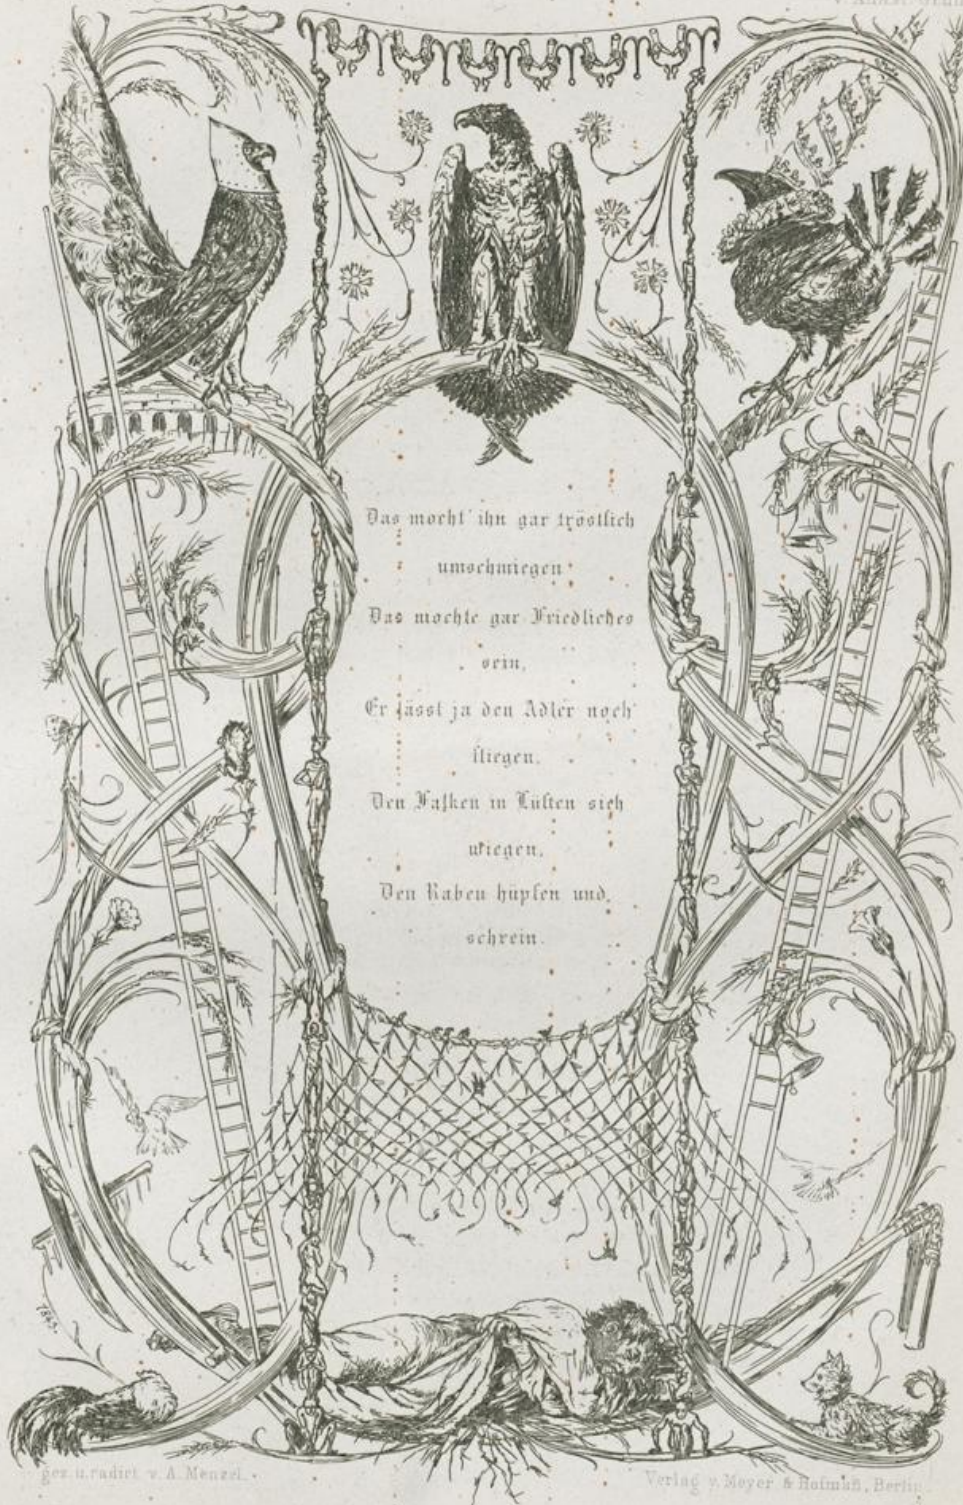 Das mocht' ihn gar tröstlich
umschmiegen
Das mochte gar Friedliches
sein,
Er lässt ja den Adler noch
fliegen,
Den Falken in Lüften sich
wiegen,
Den Raben hüpfen und
schrein.
1843.
gez. u. radirt v. A. Menzel.
Verlag v. Meyer & Hofmann, Berlin.